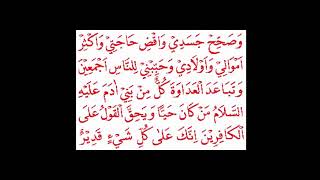 وَصَحِّحْ جَسَدِيْ وَاقْضِ حَاجَتِيْ وَاَكْثِرْ
اَمْوَالِيْ وَاَوْلَادِيْ وَحَبِّبْنِيْ لِلنَّاسِ اَجْمَعِيْنَ
وَتَبَاعَدِ الْعَدَاوَةَ كُلَّهَا مِنْ بَنِيْ اٰدَمَ عَلَيْهِ
السَّلَامُ مَنْ كَانَ حَيًّا وَيَحِقَّ الْقَوْلُ عَلَى
الْكَافِرِيْنَ اِنَّكَ عَلٰى كُلِّ شَيْءٍ قَدِيْرٌ